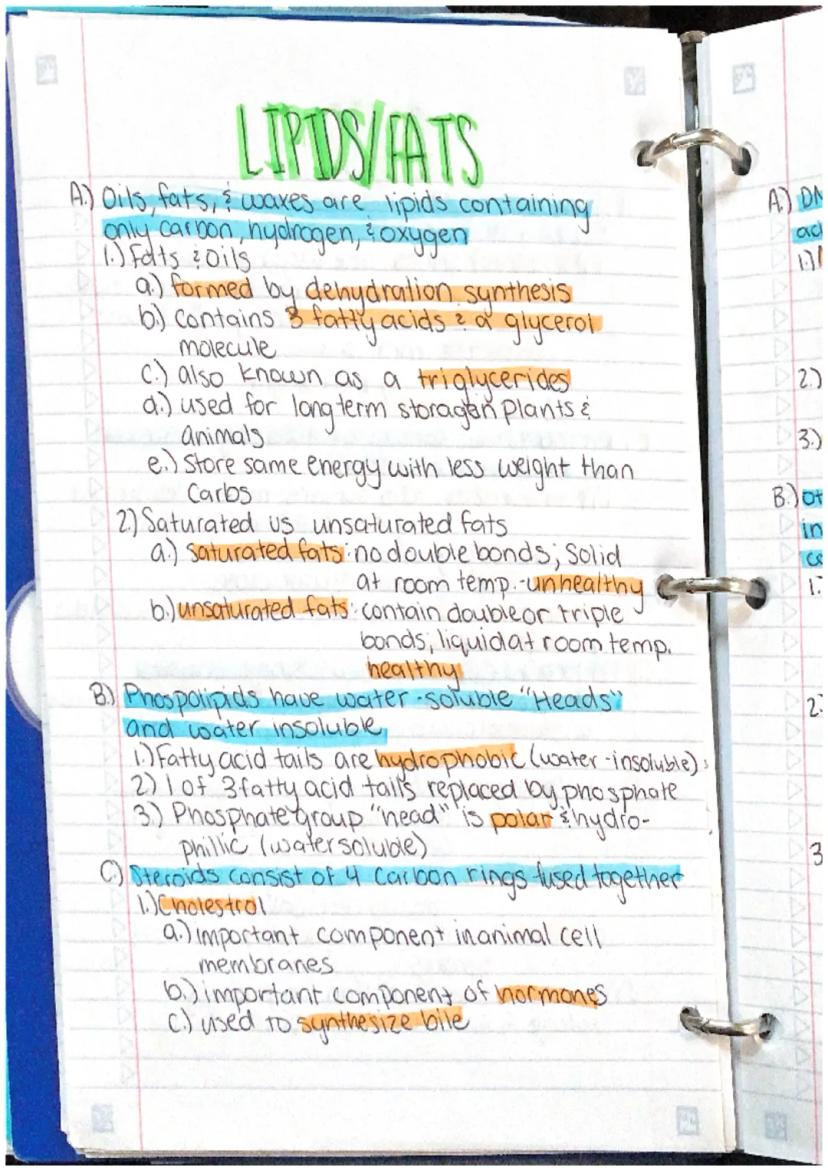 LIPIDS/FATS
A.) Oils, fats, & waxes are lipids containing
only carbon, hydrogen, & oxygen
1.) Fats & Oils
a.) formed by dehydration synthesis
b.) contains 3 fatty acids & a glycerol
molecule
c.) also known as a triglycerides
d.) used for long term storage in plants &
animals
e.) store same energy with less weight than
carbs
2.) Saturated vs unsaturated fats
a.) saturated fats: no double bonds; solid
at room temp.-unhealthy
b.) unsaturated fats: contain double or triple
bonds; liquid at room temp.
healthy
B.) Phospolipids have water-soluble "Heads"
and water insoluble
1.) Fatty acid tails are hydrophobic (water-insoluble)
2.) 1 of 3 fatty acid tails replaced by phosphate
3.) Phosphate group "head" is polar & hydro-
phillic (water soluble)
C.) Steroids consist of 4 carbon rings fused together
1.) Cholestrol
a.) important component in animal cell
membranes
b.) important component of hormones
c.) used to synthesize bile
A.) DN
1.)
2.)
3.)
B.) ot
in
1.
2.
3